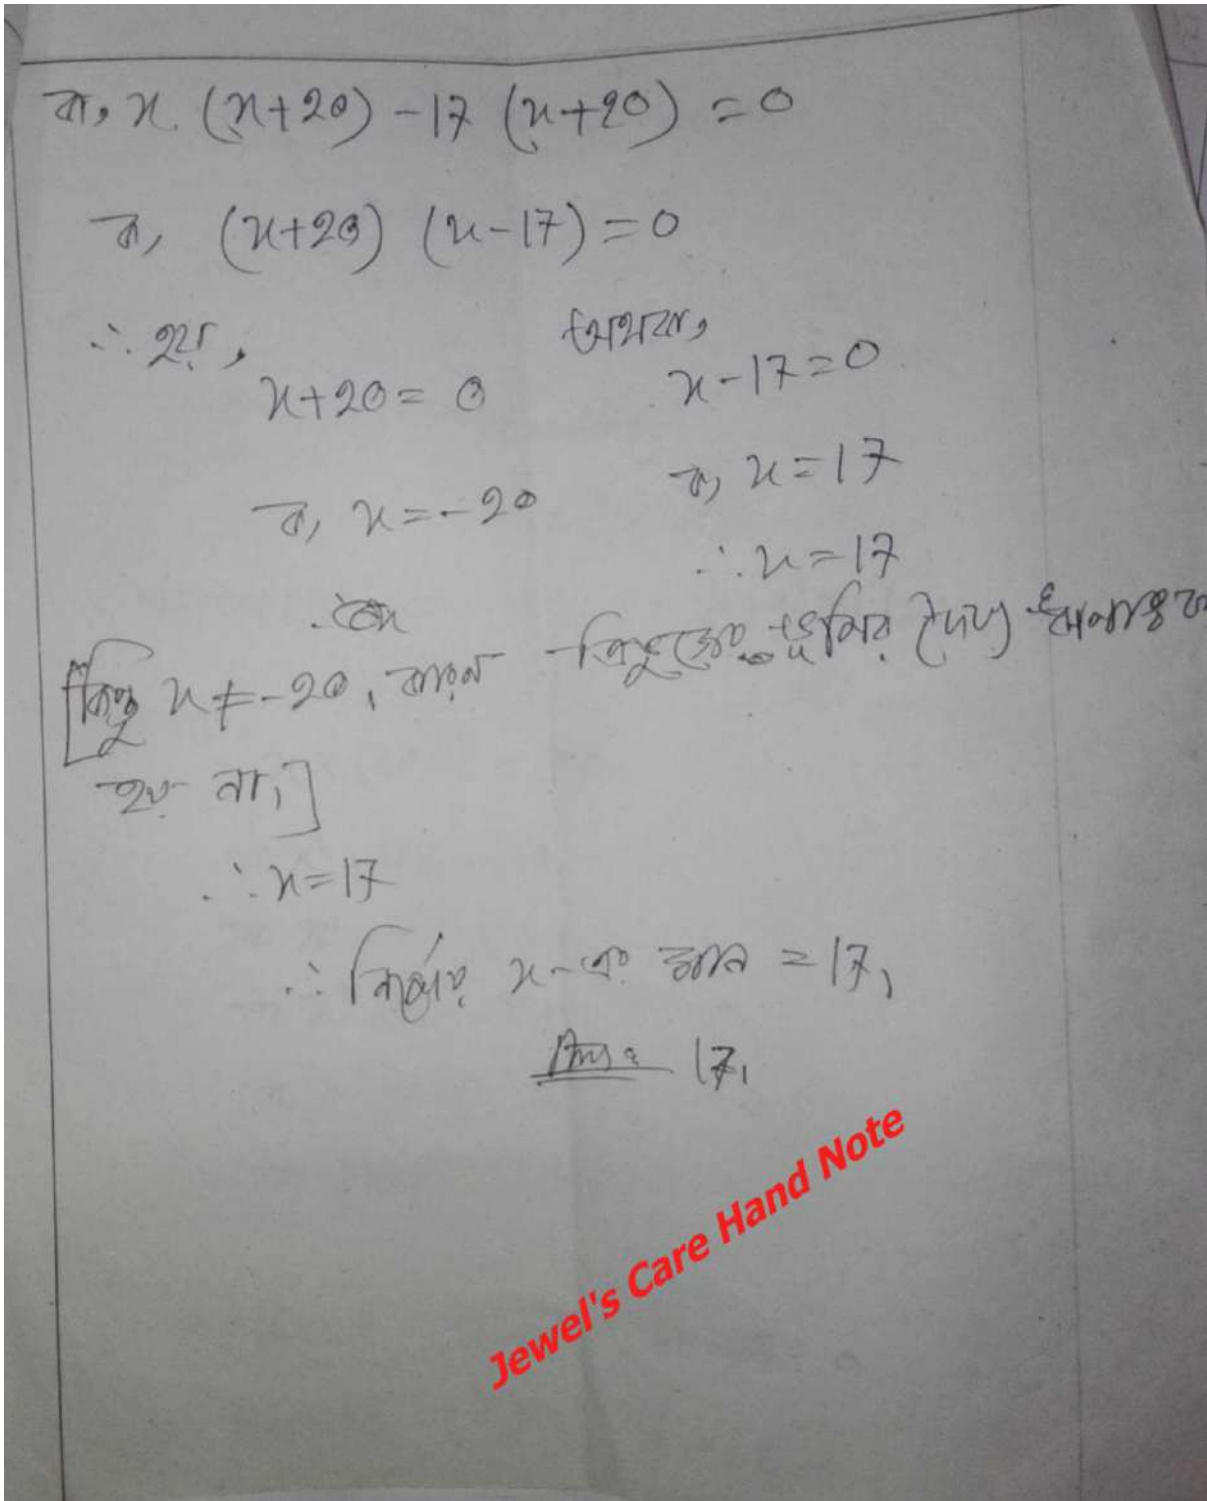 বা, x (x+20) - 17 (x+20) = 0
বা, (x+20) (x-17) = 0
∴ হয়, অথবা,
x+20 = 0 x-17=0
বা, x = -20 বা, x = 17
∴ x = 17
[কিন্তু x ≠ -20, কারণ ত্রিভুজের ভূমির দৈর্ঘ্য ঋণাত্মক
হয় না।]
∴ x = 17
∴ নির্ণেয় x-এর মান = 17,
Ans: 17,
Jewel's Care Hand Note